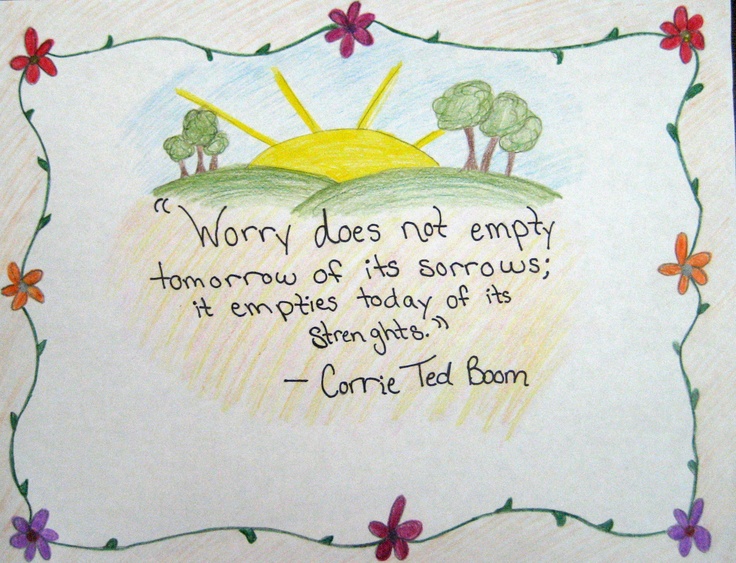 "Worry does not empty
tomorrow of its sorrows;
it empties today of its
strenghts."
– Corrie Ted Boom